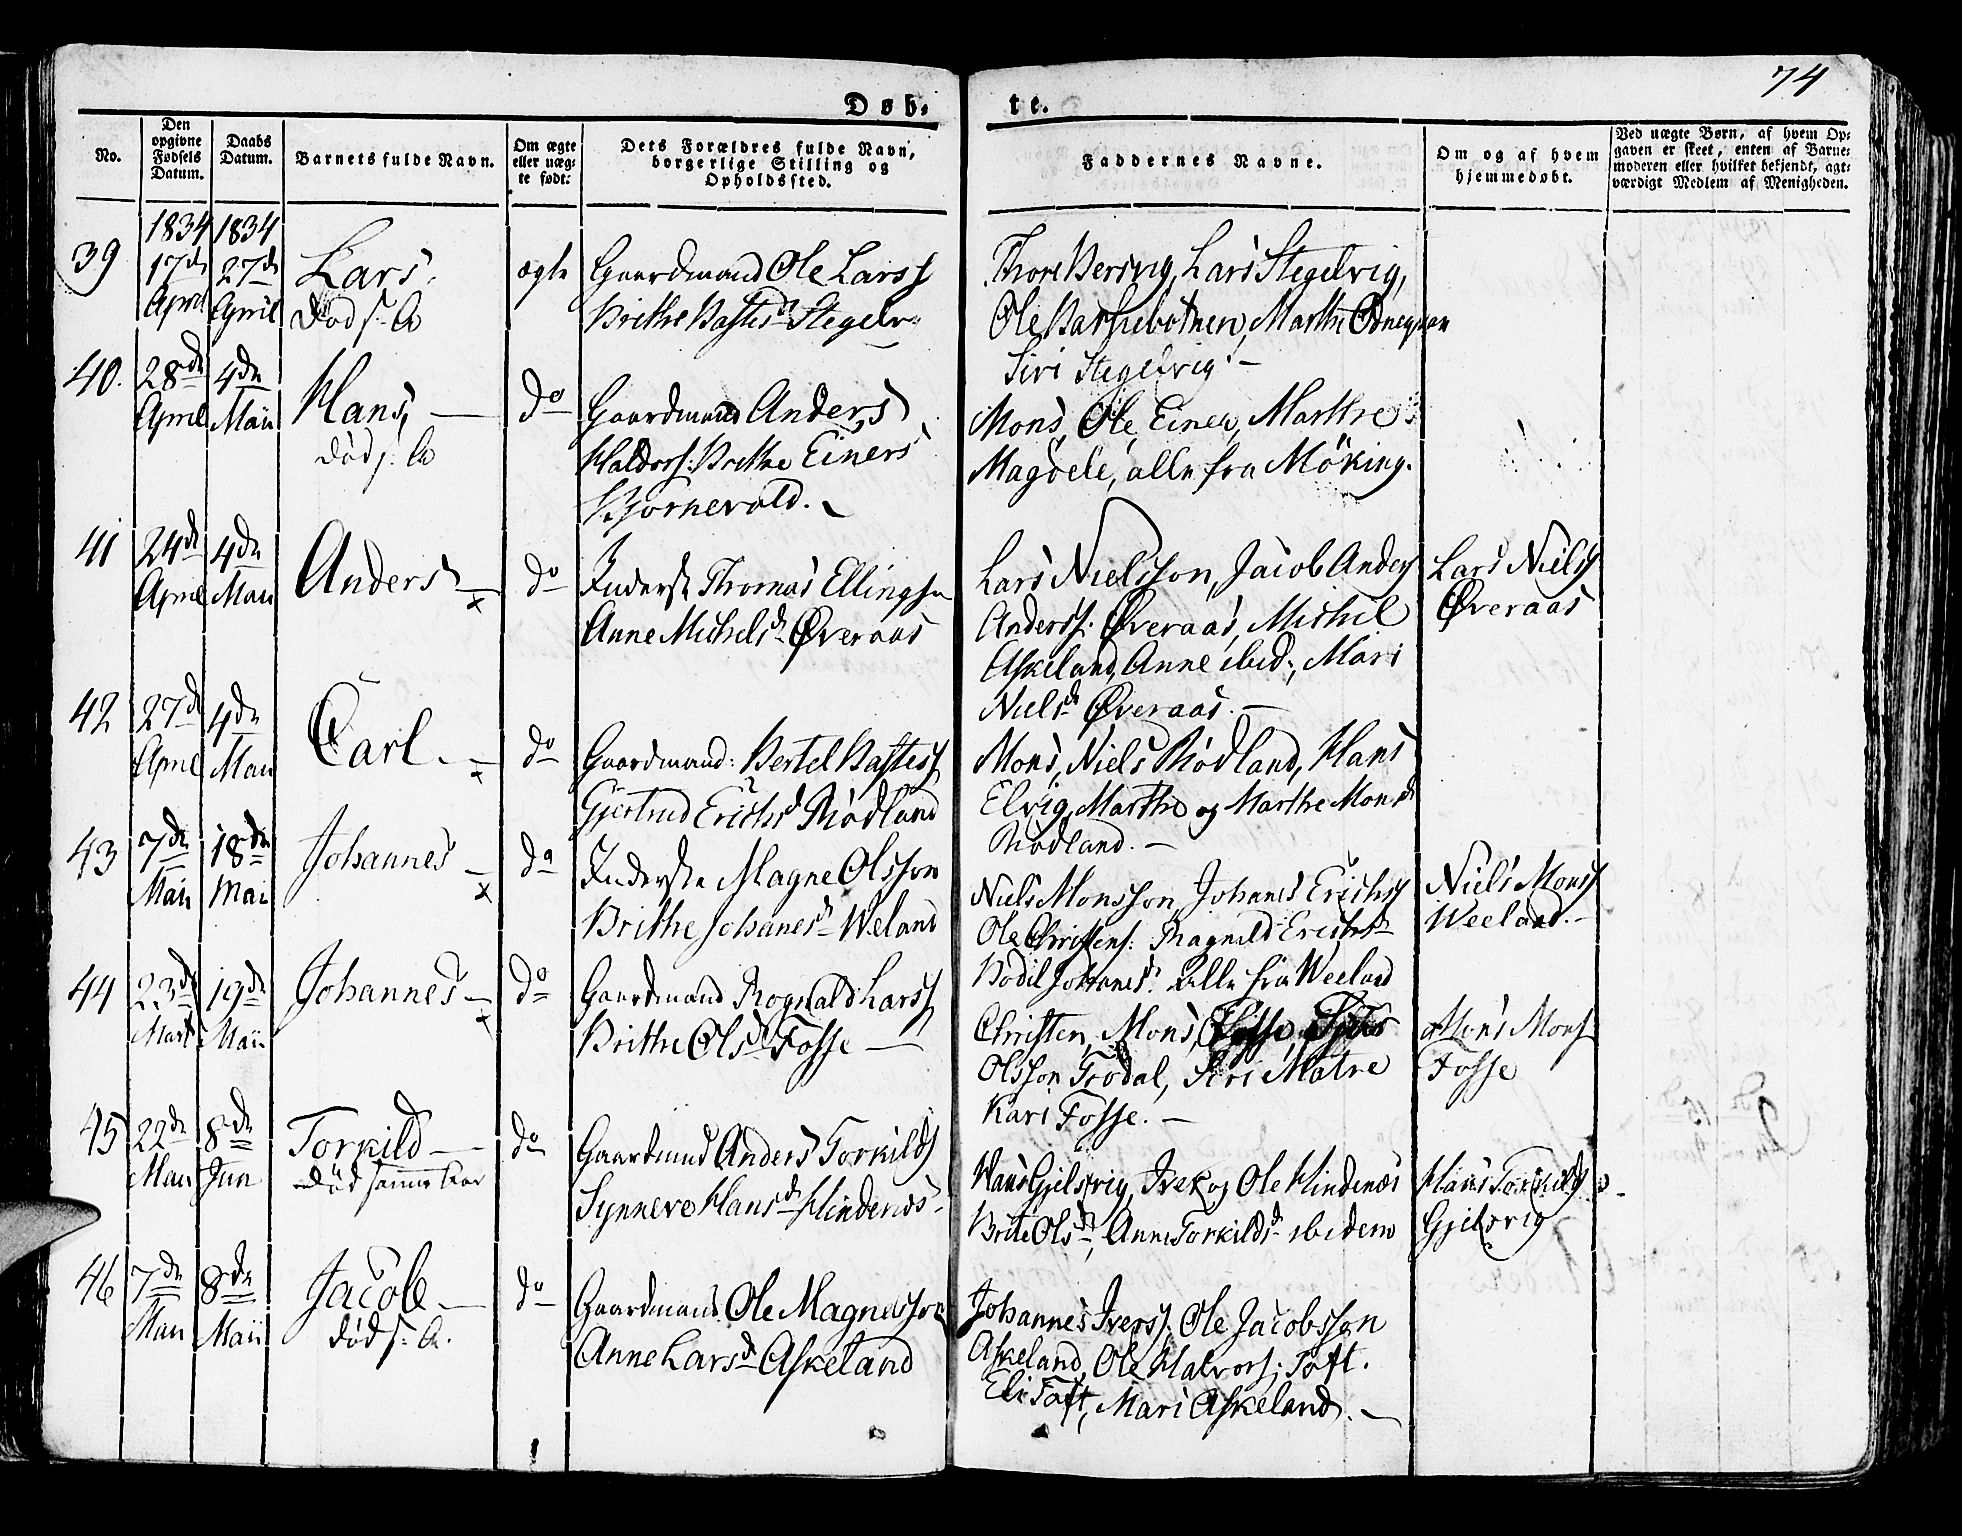 74
Døb-
te.
No.
Den opgivne Fødsels Datum.
Daabs Datum.
Barnets fulde Navn.
Om ægte eller uægte født:
Dets Forældres fulde Navn, borgerlige Stilling og Opholdssted.
Faddernes Navne.
Om og af hvem hjemmedøbt.
Ved uægte Børn, af hvem Op-
gaven er skeet, enten af Barne-
moderen eller hvilket bekjendt, agt-
værdigt Medlem af Menigheden.
39
1834 17de April
1834 27de April
Lars,
død s: A
ægte
Gaardmand Ole Larss
Brithe Bastesd Stegelv.
Lars Stegelvig,
Marthe
Siri Stegelvig. —
40.
28de April
4de Maii
Hans, —
død s: A
do
Gaardmand Anders
Haldors: Brithe Einers
Bjørnevold.
Mons, Ole, Einer, Marthe
Magdele, alle fra Møking.
41
24de April
4de Maii
Anders — x
do
Inderste Thomas Ellingsen
Anne Michelsd Øveraas
Lars Nielsson, Jacob Anders
Anderss: Øveraas, Michil
Askeland, Anne ibid:, Mari
Nielsd Øveraas. —
Lars Nielss
Øveraas
42
27de April
4de Maii
Carl. — x
do
Gaardmand: Bertel Bastess
Gjertrud Erichsd Rødland
Mons, Niels Rødland, Hans
Elvig, Marthe og Marthe Monsd
Rødland. —
43
7de Maii
18de Maii
Johannes — x
do
Inderste Magne Olsson
Brithe Johanesd Weland
Niels Monsson, Johanes Erichss
Ole Christens: Ragnild Erichsd
Bodil Johanesd: alle fra Weeland
Niels Monss
Weeland. —
44
23de Marts
19de Maii
Johannes — x
do
Gaardmand Rognald Larss
Brithe Olsd Fosse —
Christen, Mons,
Olsson Trodal, Siri Matre
Kari Fosse. —
Mons Mons
Fosse
45
22de Maii
8de Jun
Torkild —
død samme Aar
do
Gaardmand Anders Torkilds
Synneve Hansd Hindenæs
Hans Gjelsvig, Iver og Ole Hindenæs
Brite Olsd, Anne Torkildsd ibidem
Hans Torkilds
Gjelsvig
46
7de Maii
8de Maii
Jacob —
død s: A.
do
Gaardmand Ole Magnesson
Anne Larsd Askeland
Johannes Iverss: Ole Jacobsson
Askeland, Ole Halvors: Toft.
Eli Toft, Mari Askeland. —